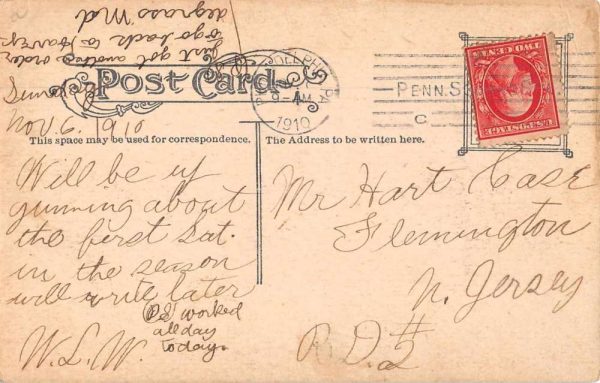 Just got another order
to go back to Havre
degrass Md
Post Card
Nov. 6. 1910
This space may be used for correspondence.
The Address to be written here.
PHILADELPHIA PA
8-AM
1910
PENN. S
C
TWO CENTS
U.S. POSTAGE
Will be up
gunning about
the first Sat.
in the season
will write later
PS worked
all day
today.
W. L. W.
Mr Hart Case
Flemington
N. Jersey
R.D. 5